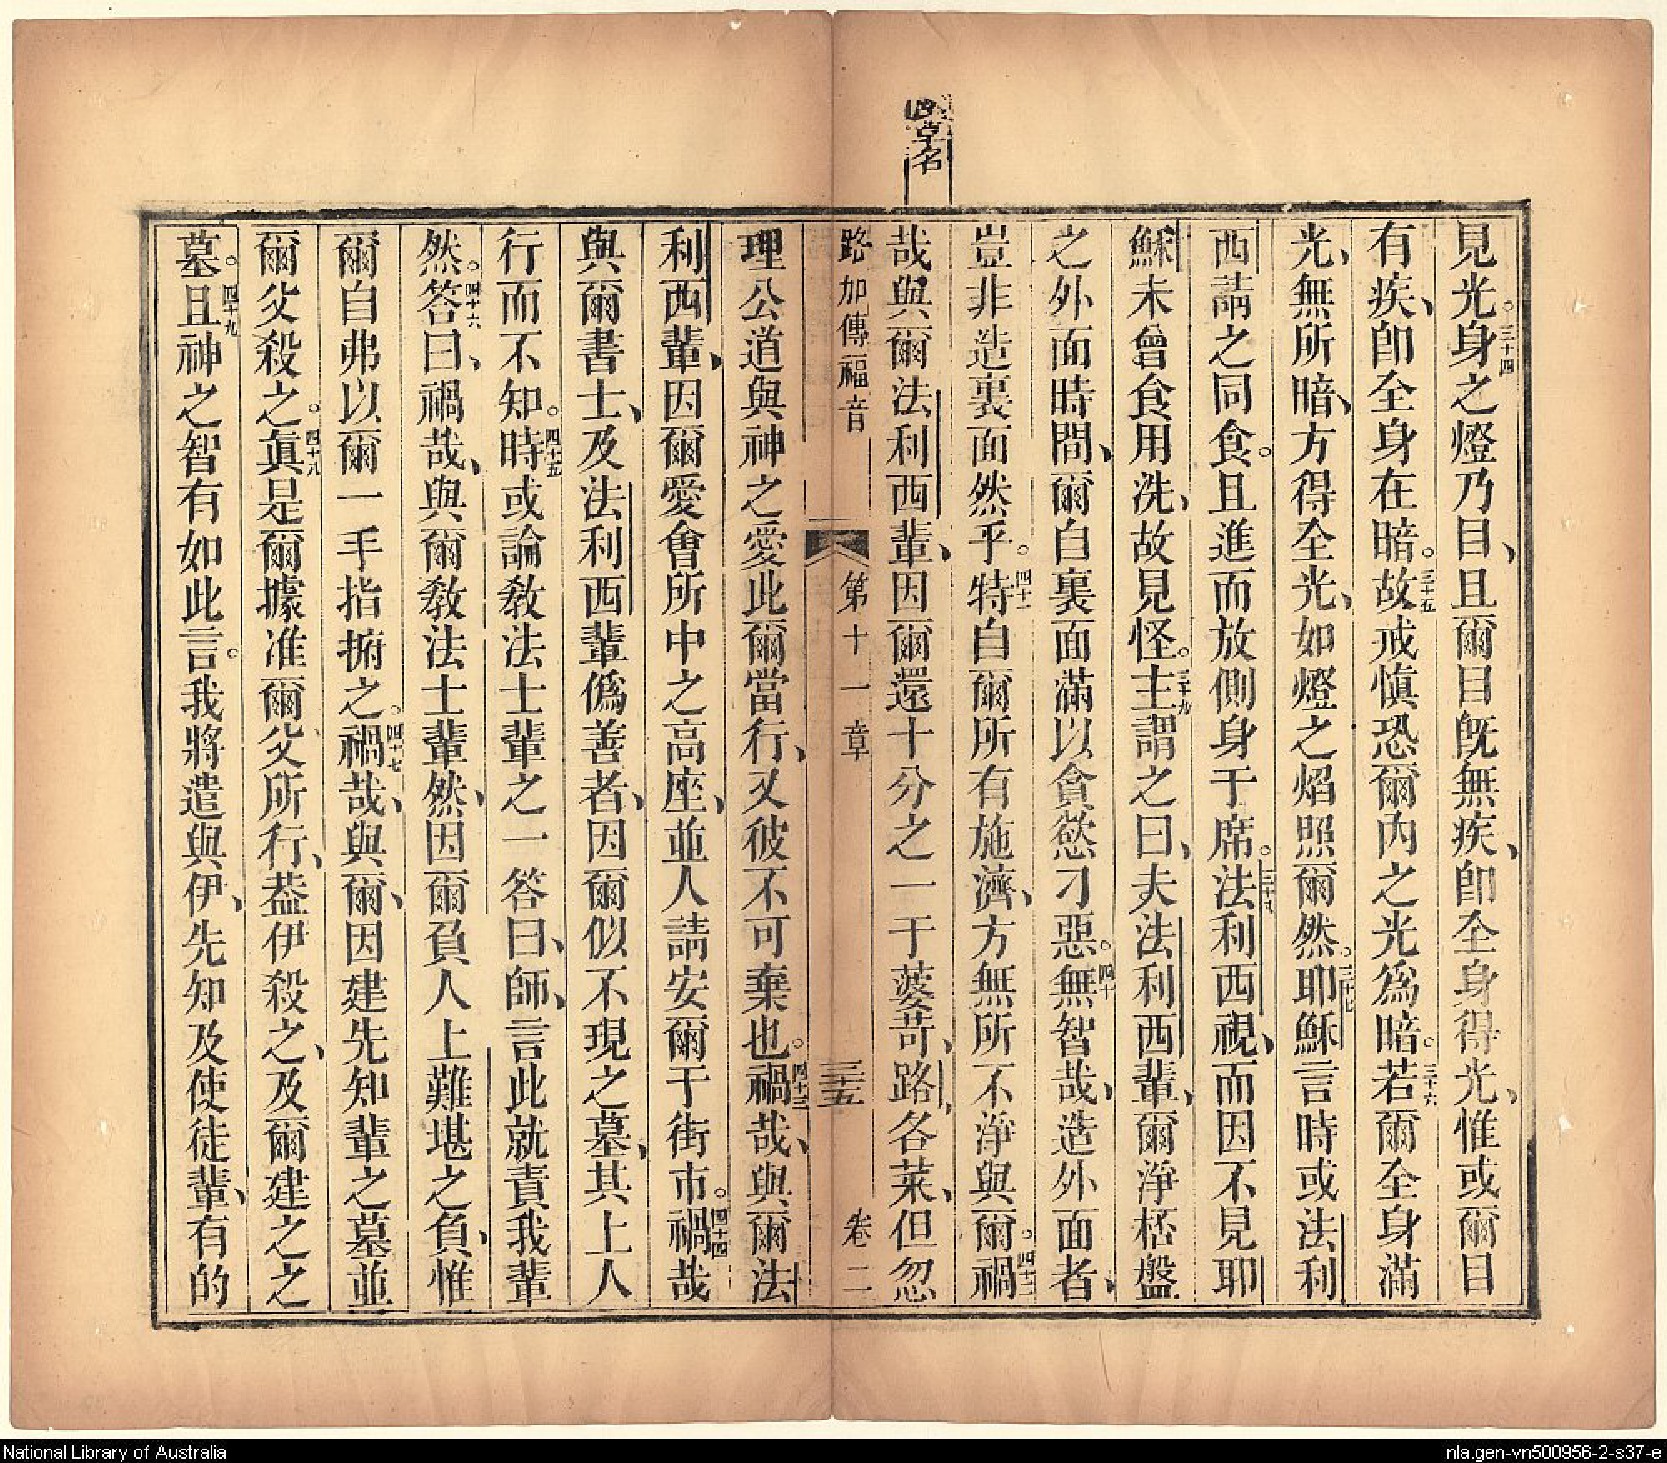 見光。三十四身之燈乃目、且爾目旣無疾、卽全身得光、惟或爾目
有疾、卽全身在暗。三十五故戒愼恐爾內之光爲暗。三十六若爾全身滿
光、無所暗、方得全光、如燈之焰照爾然。三十七耶穌言時或法利
西請之同食。且進而放側身于席。三十八法利西視、而因不見耶
穌未曾食用洗、故見怪。三十九主謂之曰、夫法利西輩、爾淨桮盤
之外面時間、爾自裏面滿以貪慾刁惡。四十無智哉、造外面者、
豈非造裏面然乎。四十一特自爾所有施濟、方無所不淨與爾。四十二禍
哉與爾法利西輩、因爾還十分之一于蔢苛、路各萊、但忽
路加傳福音 第十一章 三十五 卷二
理公道與神之愛此爾當行、又彼不可棄也。四十三禍哉、與爾法
利西輩、因爾愛會所中之高座、並人請安爾于街市。四十四禍哉
與爾書士、及法利西輩僞善者、因爾似不現之墓、其上人
行而不知。四十五時或論敎法士輩之一答曰、師、言此就責我輩
然。四十六答曰、禍哉、與爾敎法士輩然、因爾負人上難堪之負、惟
爾自弗以爾一手指捬之。四十七禍哉、與爾、因建先知輩之墓並
爾父殺之。四十八眞是爾據准爾父所行、葢伊殺之、及爾建之之
墓。四十九且神之智有如此言。我將遣與伊、先知及使徒輩、有的
National Library of Australia
nla.gen-vn500956-2-s37-e